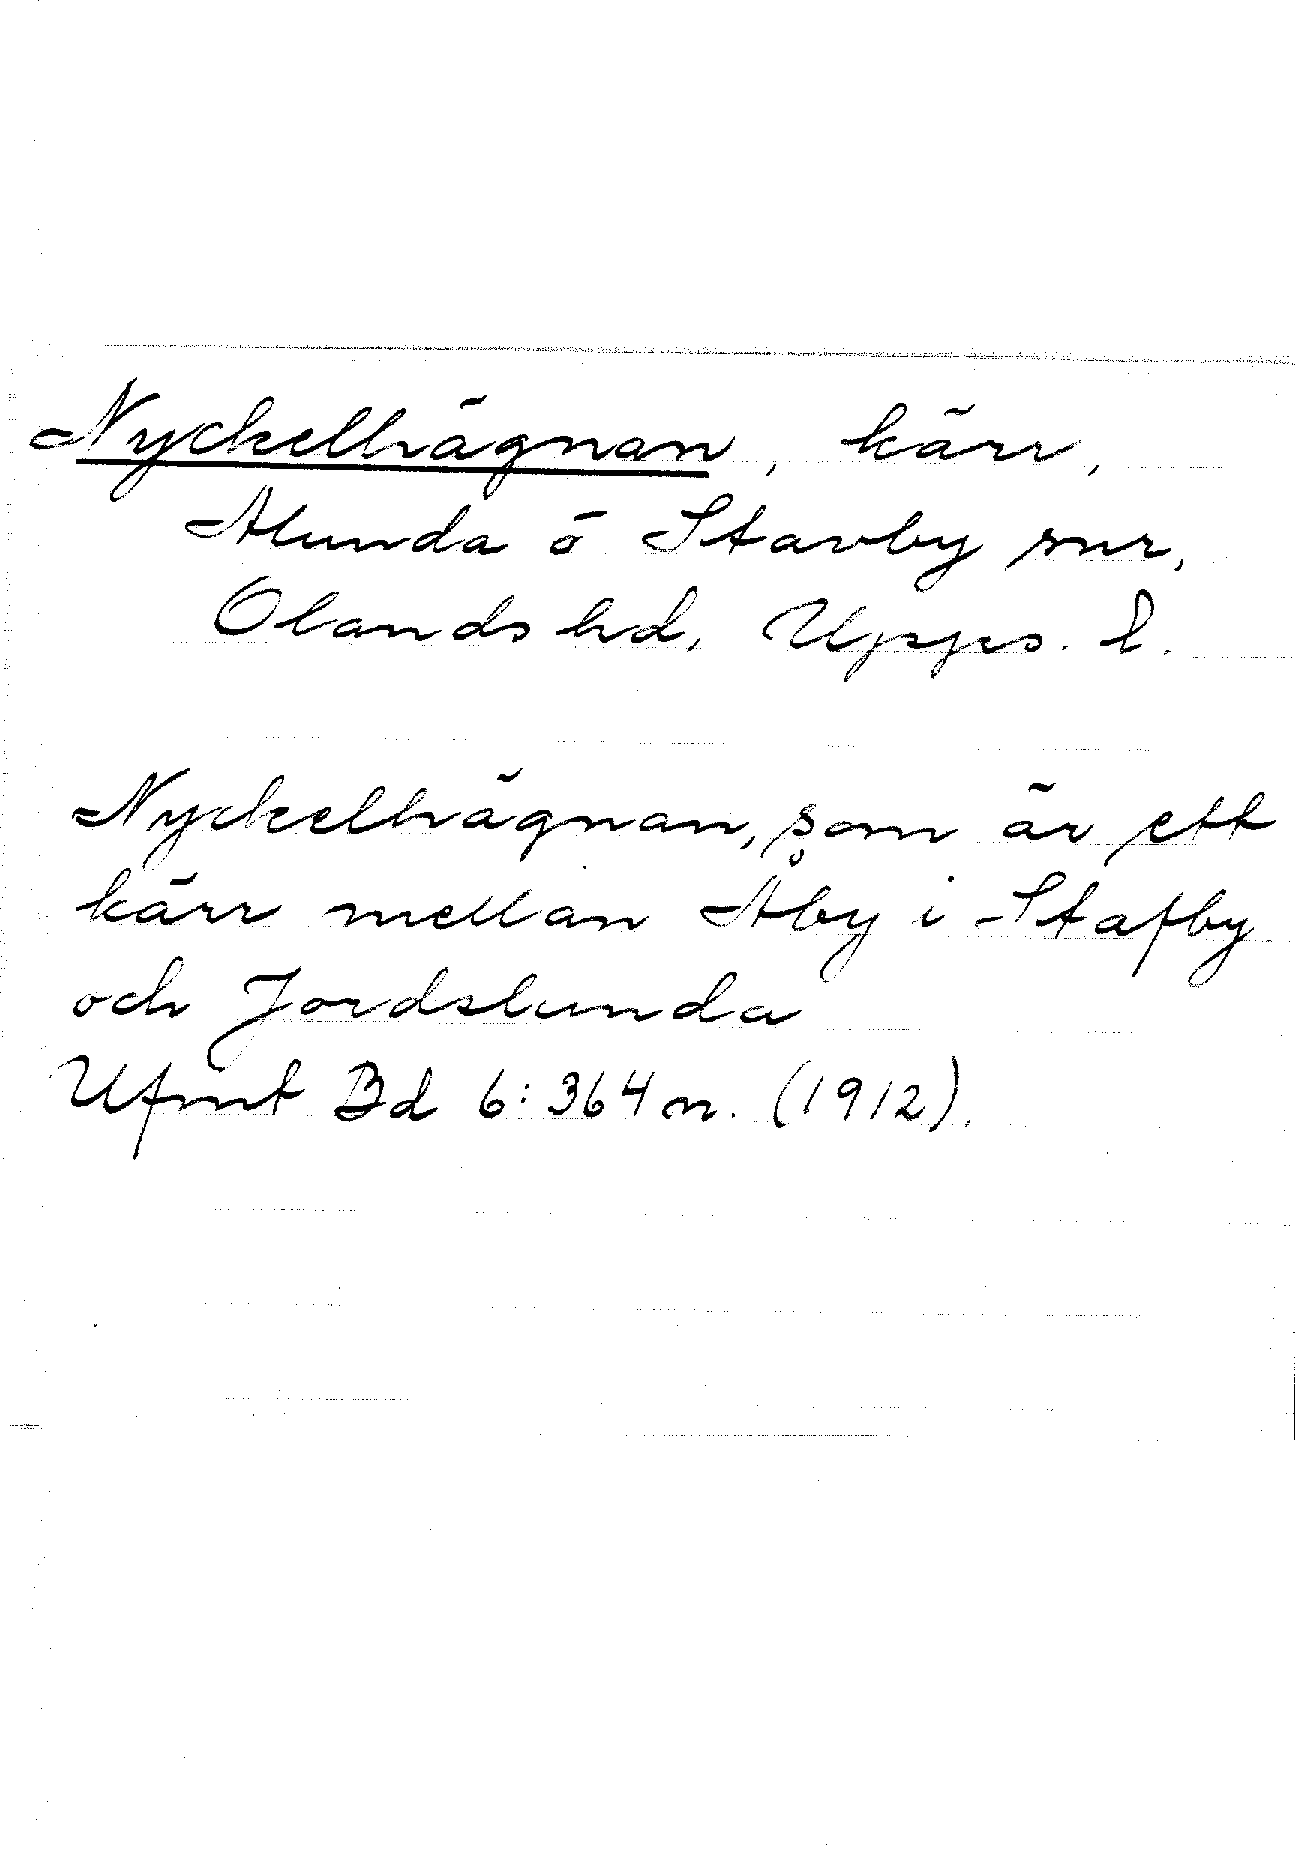 Nyckelhägnan, kärr,
Alunda o Stavby snr,
Olands hd, Upps. l.
Nyckelhägnan, som är ett
kärr mellan Åby i Stafby
och Jordslunda
Ufmt Bd 6:364 n. (1912).